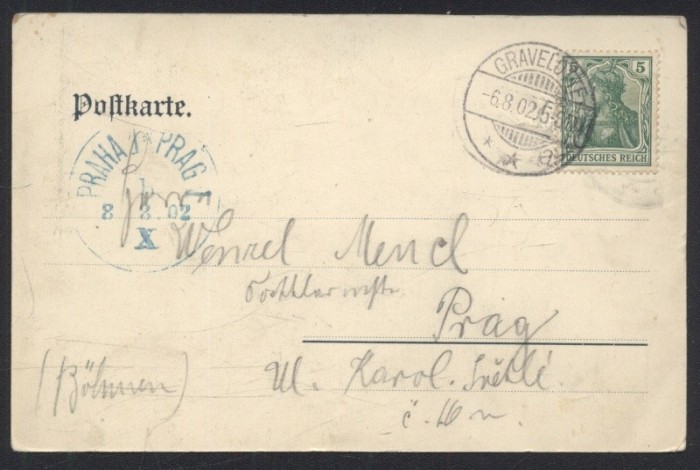 Postkarte.
5
DEUTSCHES REICH
-6.8.02.5-
PRAHA 1 PRAG 1
8 8.02
X
Wenzel Mencl
Prag
(Böhmen)
Ul. Karol. Světlé.
č.